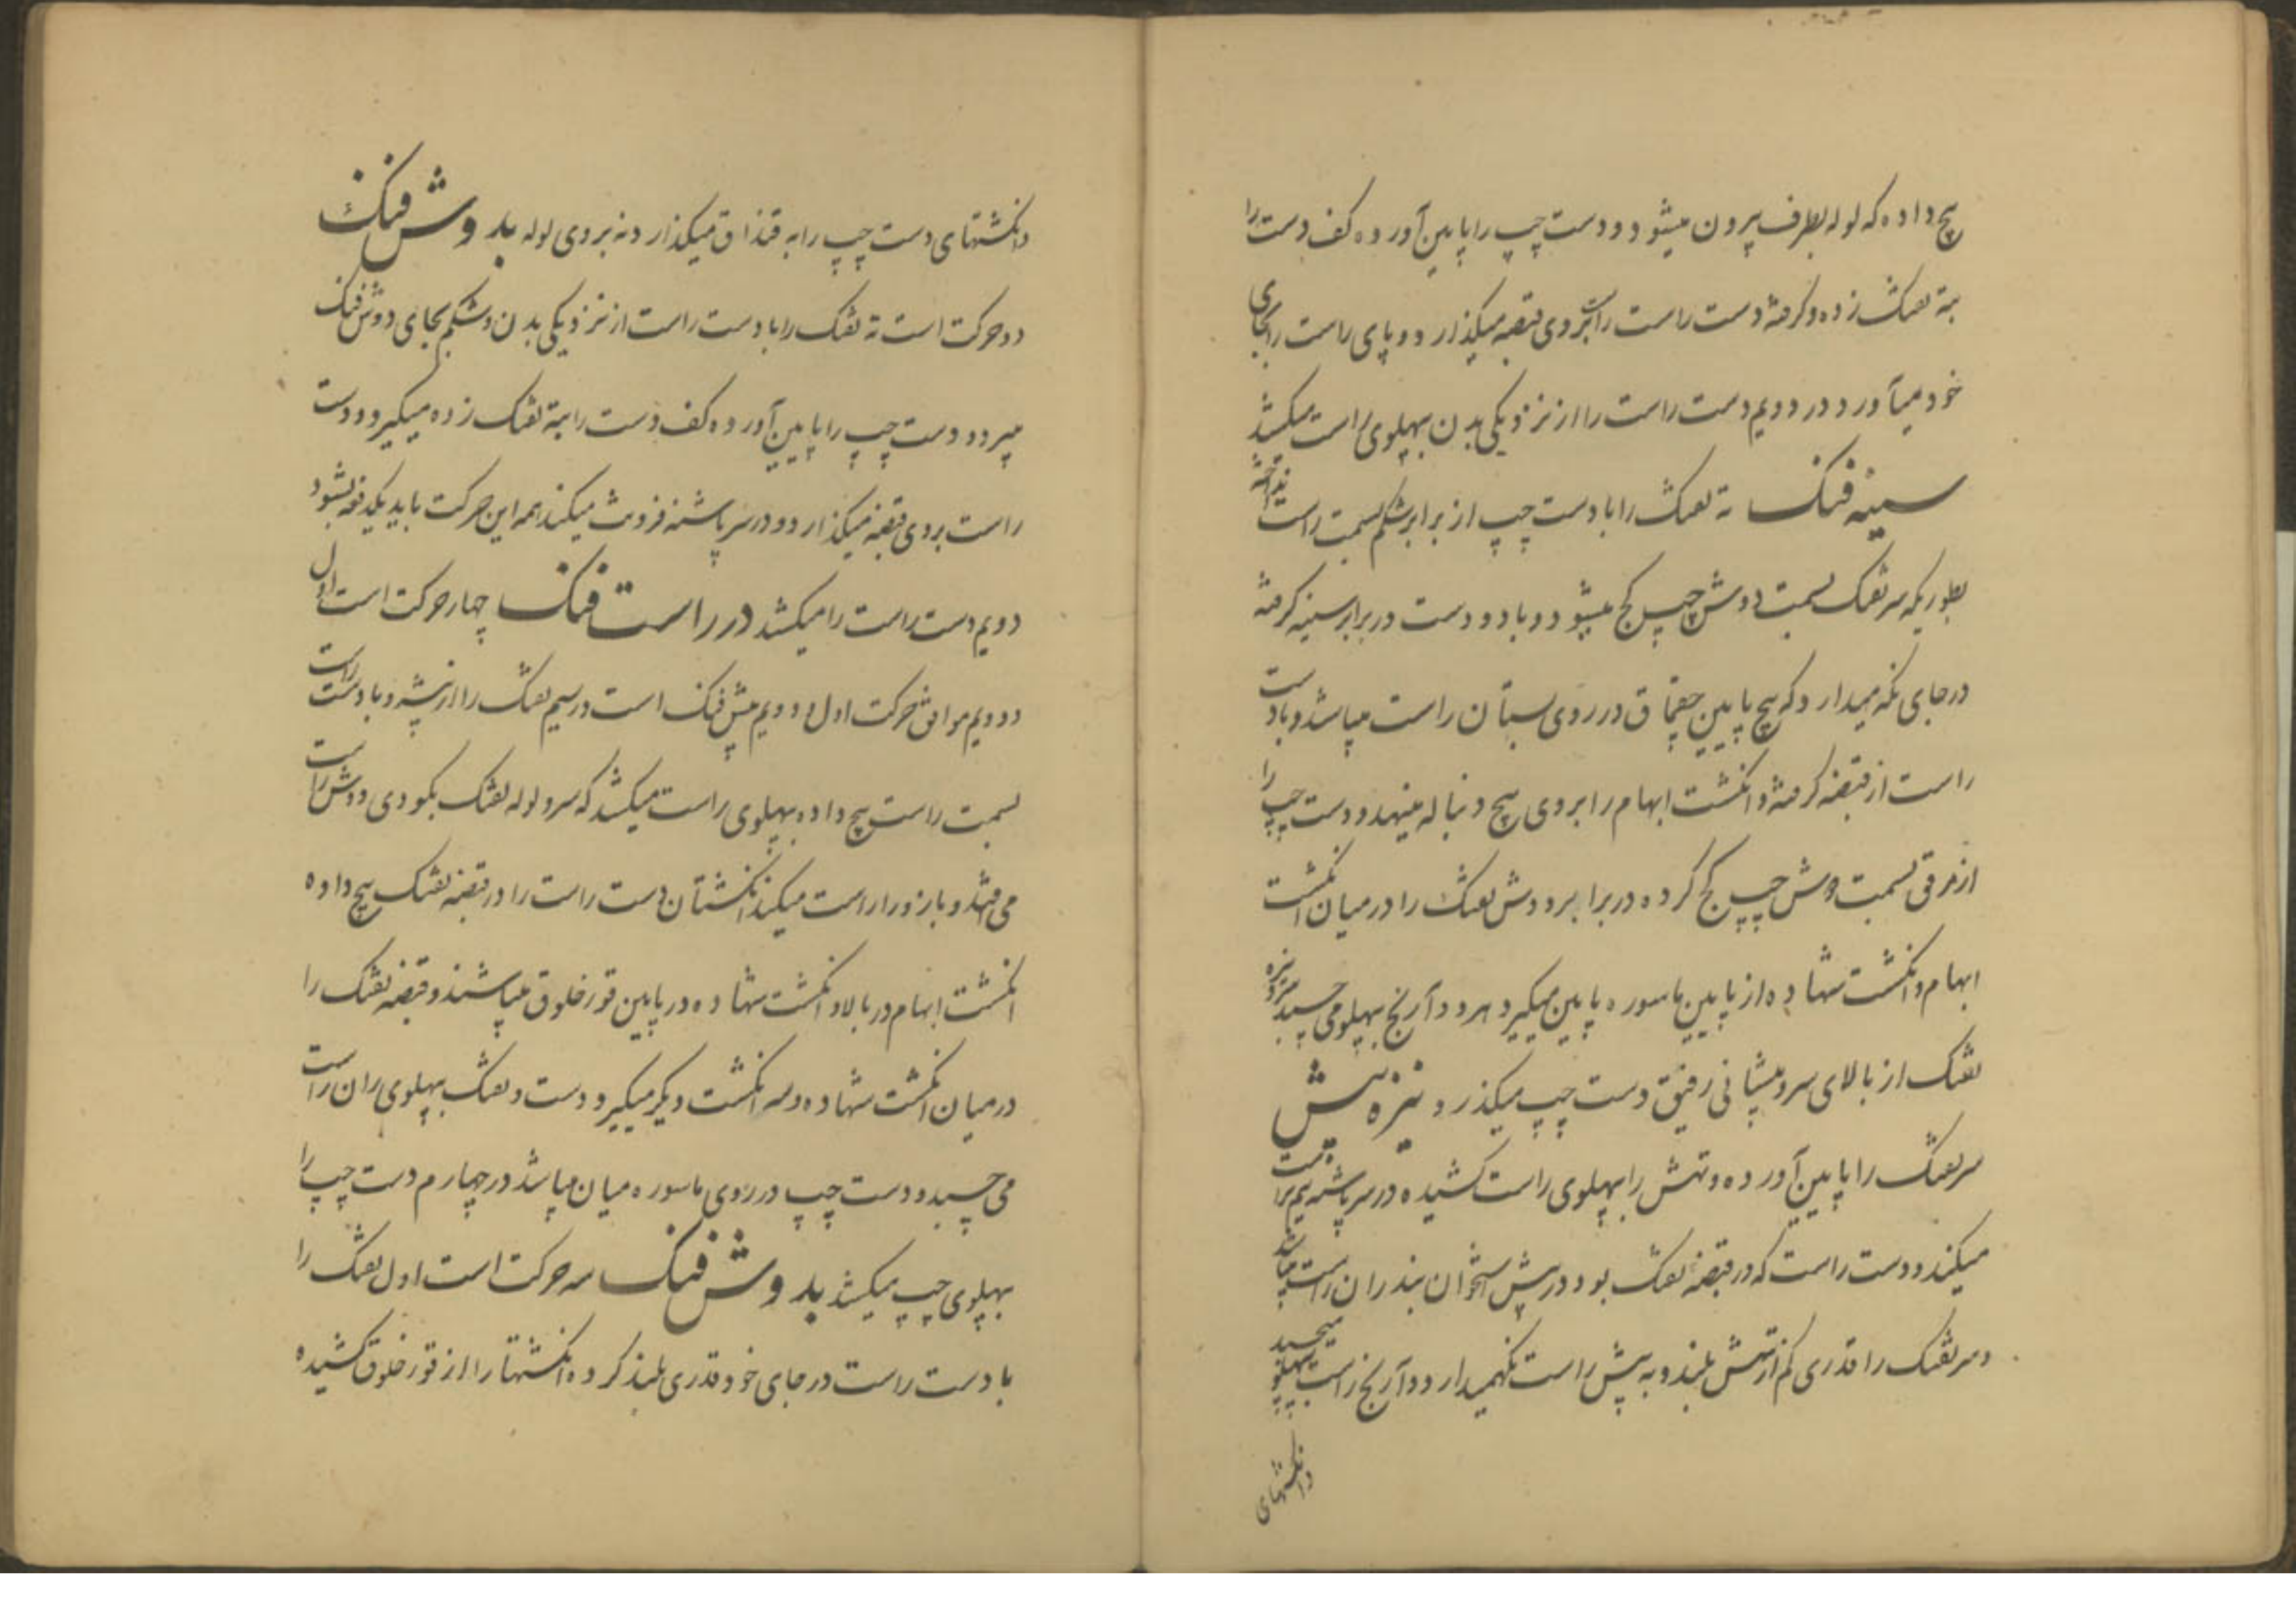 پیچ داده که لوله بطرف بیرون میشود و دست چپ را پایین آورده کف دست را
بته تفنک زده و کرفته دست راست را بروی قبضه میکذارد و پای راست را بجای
خود میآورد در دویم دست راست را از نزدیکی بدن بپهلوی راست میکشد
سینه فنک ته تفنک را با دست چپ از برابر شکم بسمت راست انداخته
بطوریکه سر تفنک بسمت دوش چپ کج میشود و با دو دست در برابر سینه کرفته
در جای نکه میدارد که پیچ پایین چقماق در روی پستان راست میباشد و با دست
راست از قبضه کرفته و انکشت ابهام را بروی پیچ دنباله مینهد و دست چپ را
از مرفق بسمت دوش چپ کج کرده در برابر دوش تفنک را در میان انکشت
ابهام و انکشت شهاده از پایین ماسوره پایین میکیرد و هر دو آرنج بپهلو می چسبد سر نیزه
تفنک از بالای سر و پیشانی رفیق دست چپ میکذرد نیزه پیش
سر تفنک را پایین آورده و تهش را بپهلوی راست کشیده در سر پاشنه نیم براست
میکند و دست راست که در قبضه تفنک بود در پیش استخوان بند ران راست میباشد
و سر تفنک را قدری کم از تهش بلند و به پیش راست نکهمیدارد و آرنج راست بپهلو میچسبد
و انکشتهای
و انکشتهای دست چپ را به قنداق میکذارد نه بروی لوله بدوش فنک
دو حرکت است ته تفنک را با دست راست از نزدیکی بدن و شکم بجای دوش فنک
میبرد و دست چپ را پایین آورده کف دست را بته تفنک زده میکیرد و دست
راست بروی قبضه میکذارد و در سر پاشنه فرونت میکند همه این حرکت باید یکدفعه بشود
دویم دست راست را میکشد در راست فنک چهار حرکت است اول
و دویم موافق حرکت اول و دویم پیش فنک است در سیم تفنک را از پیشرو با دست راست
بسمت راست پیچ داده بپهلوی راست میکشد که سر و لوله تفنک بکودی دوش راست
می افتد و بازو را راست میکند انکشتان دست راست را در قبضه تفنک پیچ داده
انکشت ابهام در بالا و انکشت شهاده در پایین قورخلوق میباشند و قبضه تفنک را
در میان انکشت شهاده و سه انکشت دیکر میکیرد و دست و تفنک بپهلوی ران راست
می چسبد و دست چپ در روی ماسوره میان میباشد در چهارم دست چپ را
بپهلوی چپ میکشد بدوش فنک سه حرکت است اول تفنک را
با دست راست در جای خود قدری بلند کرده انکشتها را از قورخلوق کشیده